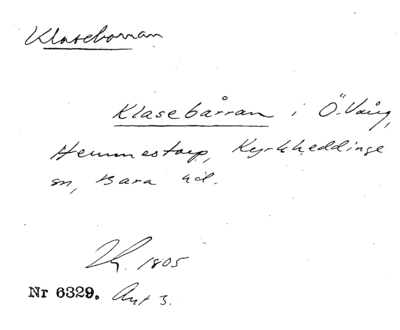 Klaseborran
Klasebårran i Ö. Vång,
Hemmestorp, Kyrkheddinge
sn, Bara hd.
1805
Nr 6329. Akt 3.